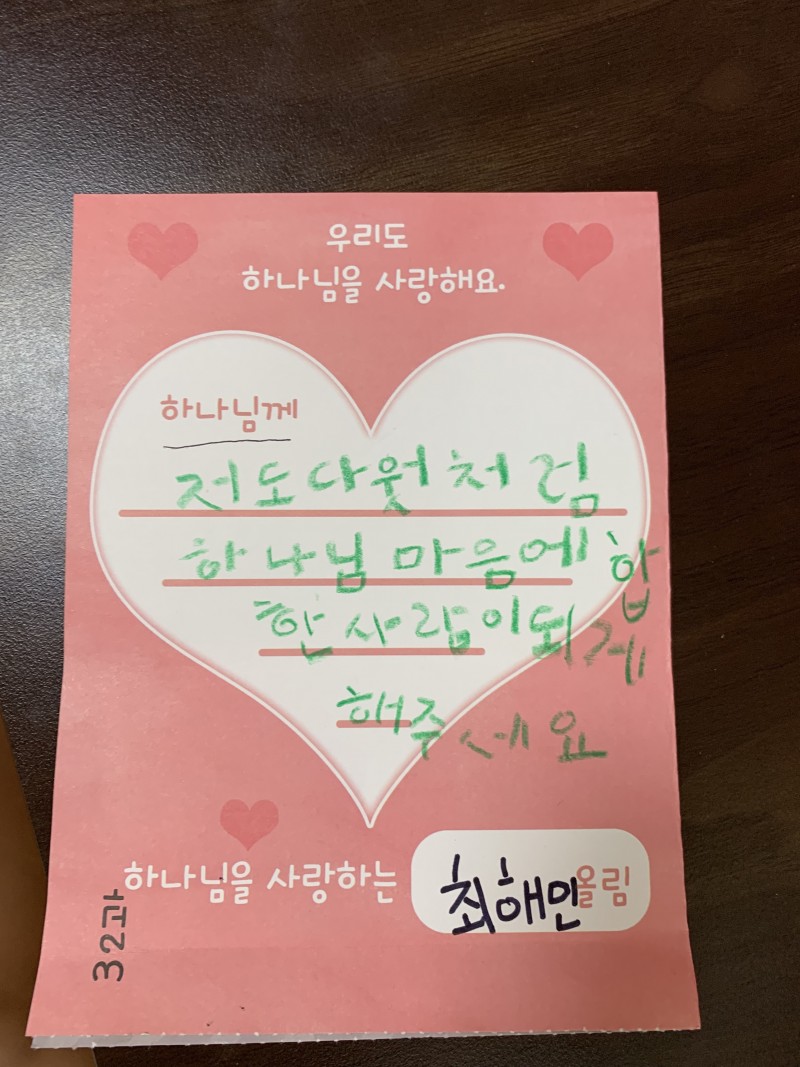 우리도
하나님을 사랑해요.
하나님께
저도다윗처럼
하나님마음에합
한사람이되게
해주세요
하나님을 사랑하는 최해민올림
32과